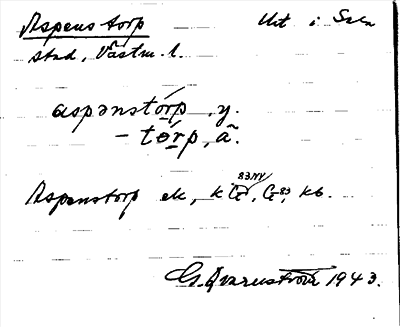 Aspenstorp Ut i Sala
stad, Västm. l.
aspənstórp, y.
- tórp, ä.
Aspenstorp ek, k G, G 83, kb.
83 NV
G. Qvarnström 1943.